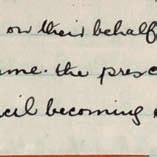 on their behalf
me. the presc
cil becoming